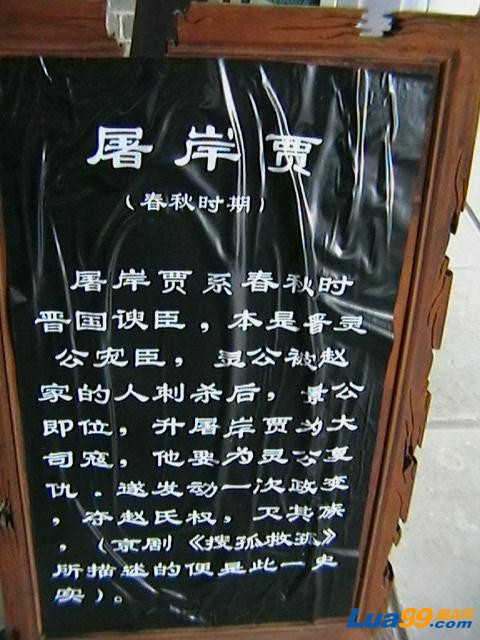 屠岸贾
(春秋时期)
屠岸贾系春秋时
晋国谀臣，本是晋灵
公宠臣，灵公被赵
家的人刺杀后，景公
即位，升屠岸贾为大
司寇，他要为灵公复
仇．遂发动一次政变
，夺赵氏权，灭其族
，(京剧《搜孤救孤》
所描述的便是此一史
实)。
Lua99.com